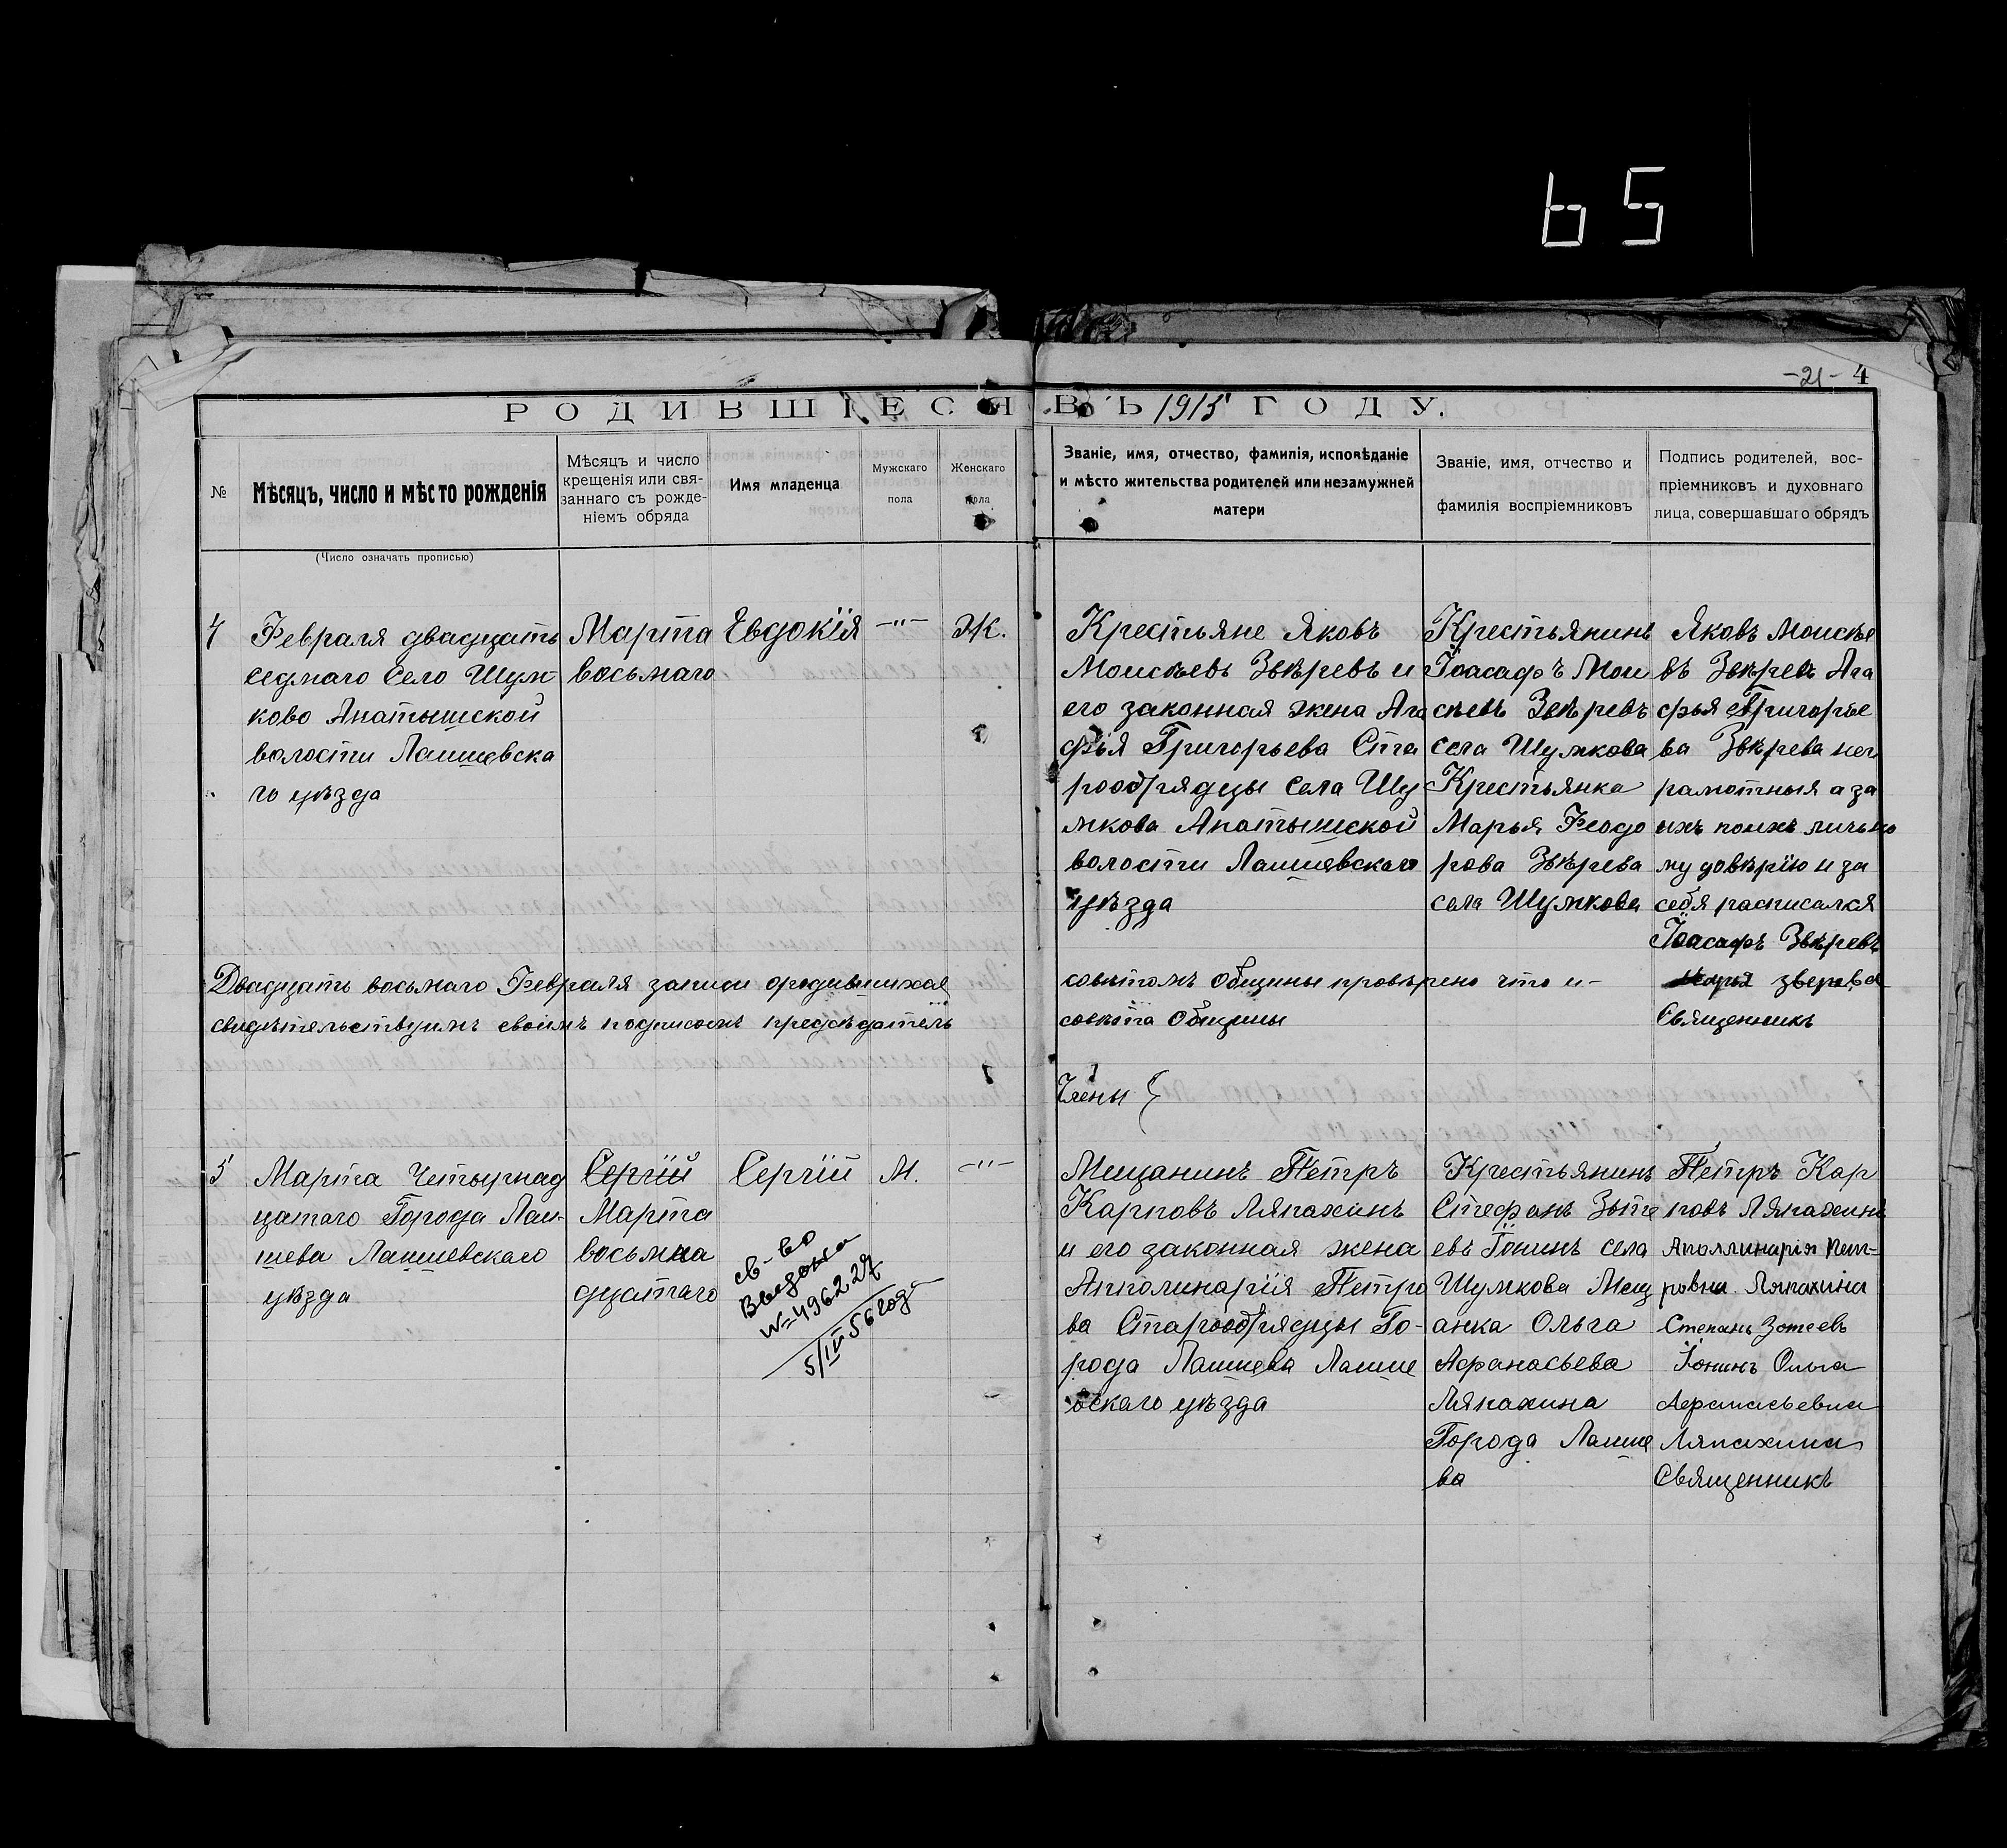 65
-21- 4
РОДИВШІЕСЯ ВЪ 1915 ГОДУ.
№
Мѣсяцъ, число и мѣсто рожденія
(Число означать прописью)
Мѣсяцъ и число
крещенія или свя-
заннаго съ рожде-
ніемъ обряда
Имя младенца
Мужскаго
пола
Женскаго
пола
Званіе, имя, отчество, фамилія, исповѣданіе
и мѣсто жительства родителей или незамужней
матери
Званіе, имя, отчество и
фамилія воспріемниковъ
Подпись родителей, вос-
пріемниковъ и духовнаго
лица, совершавшаго обрядъ
4
Февраля двадцать
седмаго Село Шум-
ково Анатышской
волости Лаишевска
го уѣзда
Марта
восьмаго
Евдокія
-"-
Ж.
Крестьяне Яковъ
Моисѣевъ Звѣревъ и
его законная жена Ага
фья Григорьева Ста
рообрядцы Села Шу
мкова Анатышской
волости Лаишевскаго
уѣзда
Крестьянинъ
Іоасафъ Мои
сѣевъ Звѣревъ
села Шумкова
Крестьянка
Марья Феодо
рова Звѣрева
села Шумкова
Яковъ Моисѣе
въ Звѣревъ Ага
фья Григорье
ва Звѣрева нег
рамотныя а за
ихъ поихъ личьно
му довѣрію и за
себя расписался
Іоасафъ Звѣревъ
Марья зверева
Священникъ
Двадцать восьмаго Февраля записи ородившихся
совѣтомъ Общины провѣрено что и-
свидѣтельствуимъ своимъ подписомъ предсѣдатель
совѣта Общины
Члены {
5
Марта Четырнад
цатаго Города Лаи-
шева Лаишевскаго
уѣзда
Сергій
Марта
восьмна
дцатаго
Сергій
св-во
Выдона
№-496227
5/III 56 года
М.
-"-
Мещанинъ Петръ
Карповъ Ляпахинъ
и его законная жена
Апполинарія Петро
ва Старообрядцы Го-
рода Лаишева Лаише
вскаго уѣзда
Крестьянинъ
Стефанъ Зоте
евъ Іонинъ села
Шумкова Мещ
анка Ольга
Афанасьева
Ляпахина
Города Лаише
ва
Петръ Кар
повъ Ляпахинъ
Аполлинарія Пет-
ровна Ляпахина
Степанъ Зотеевъ
Іонинъ Ольга
Афанасьевна
Ляпахина
Священникъ